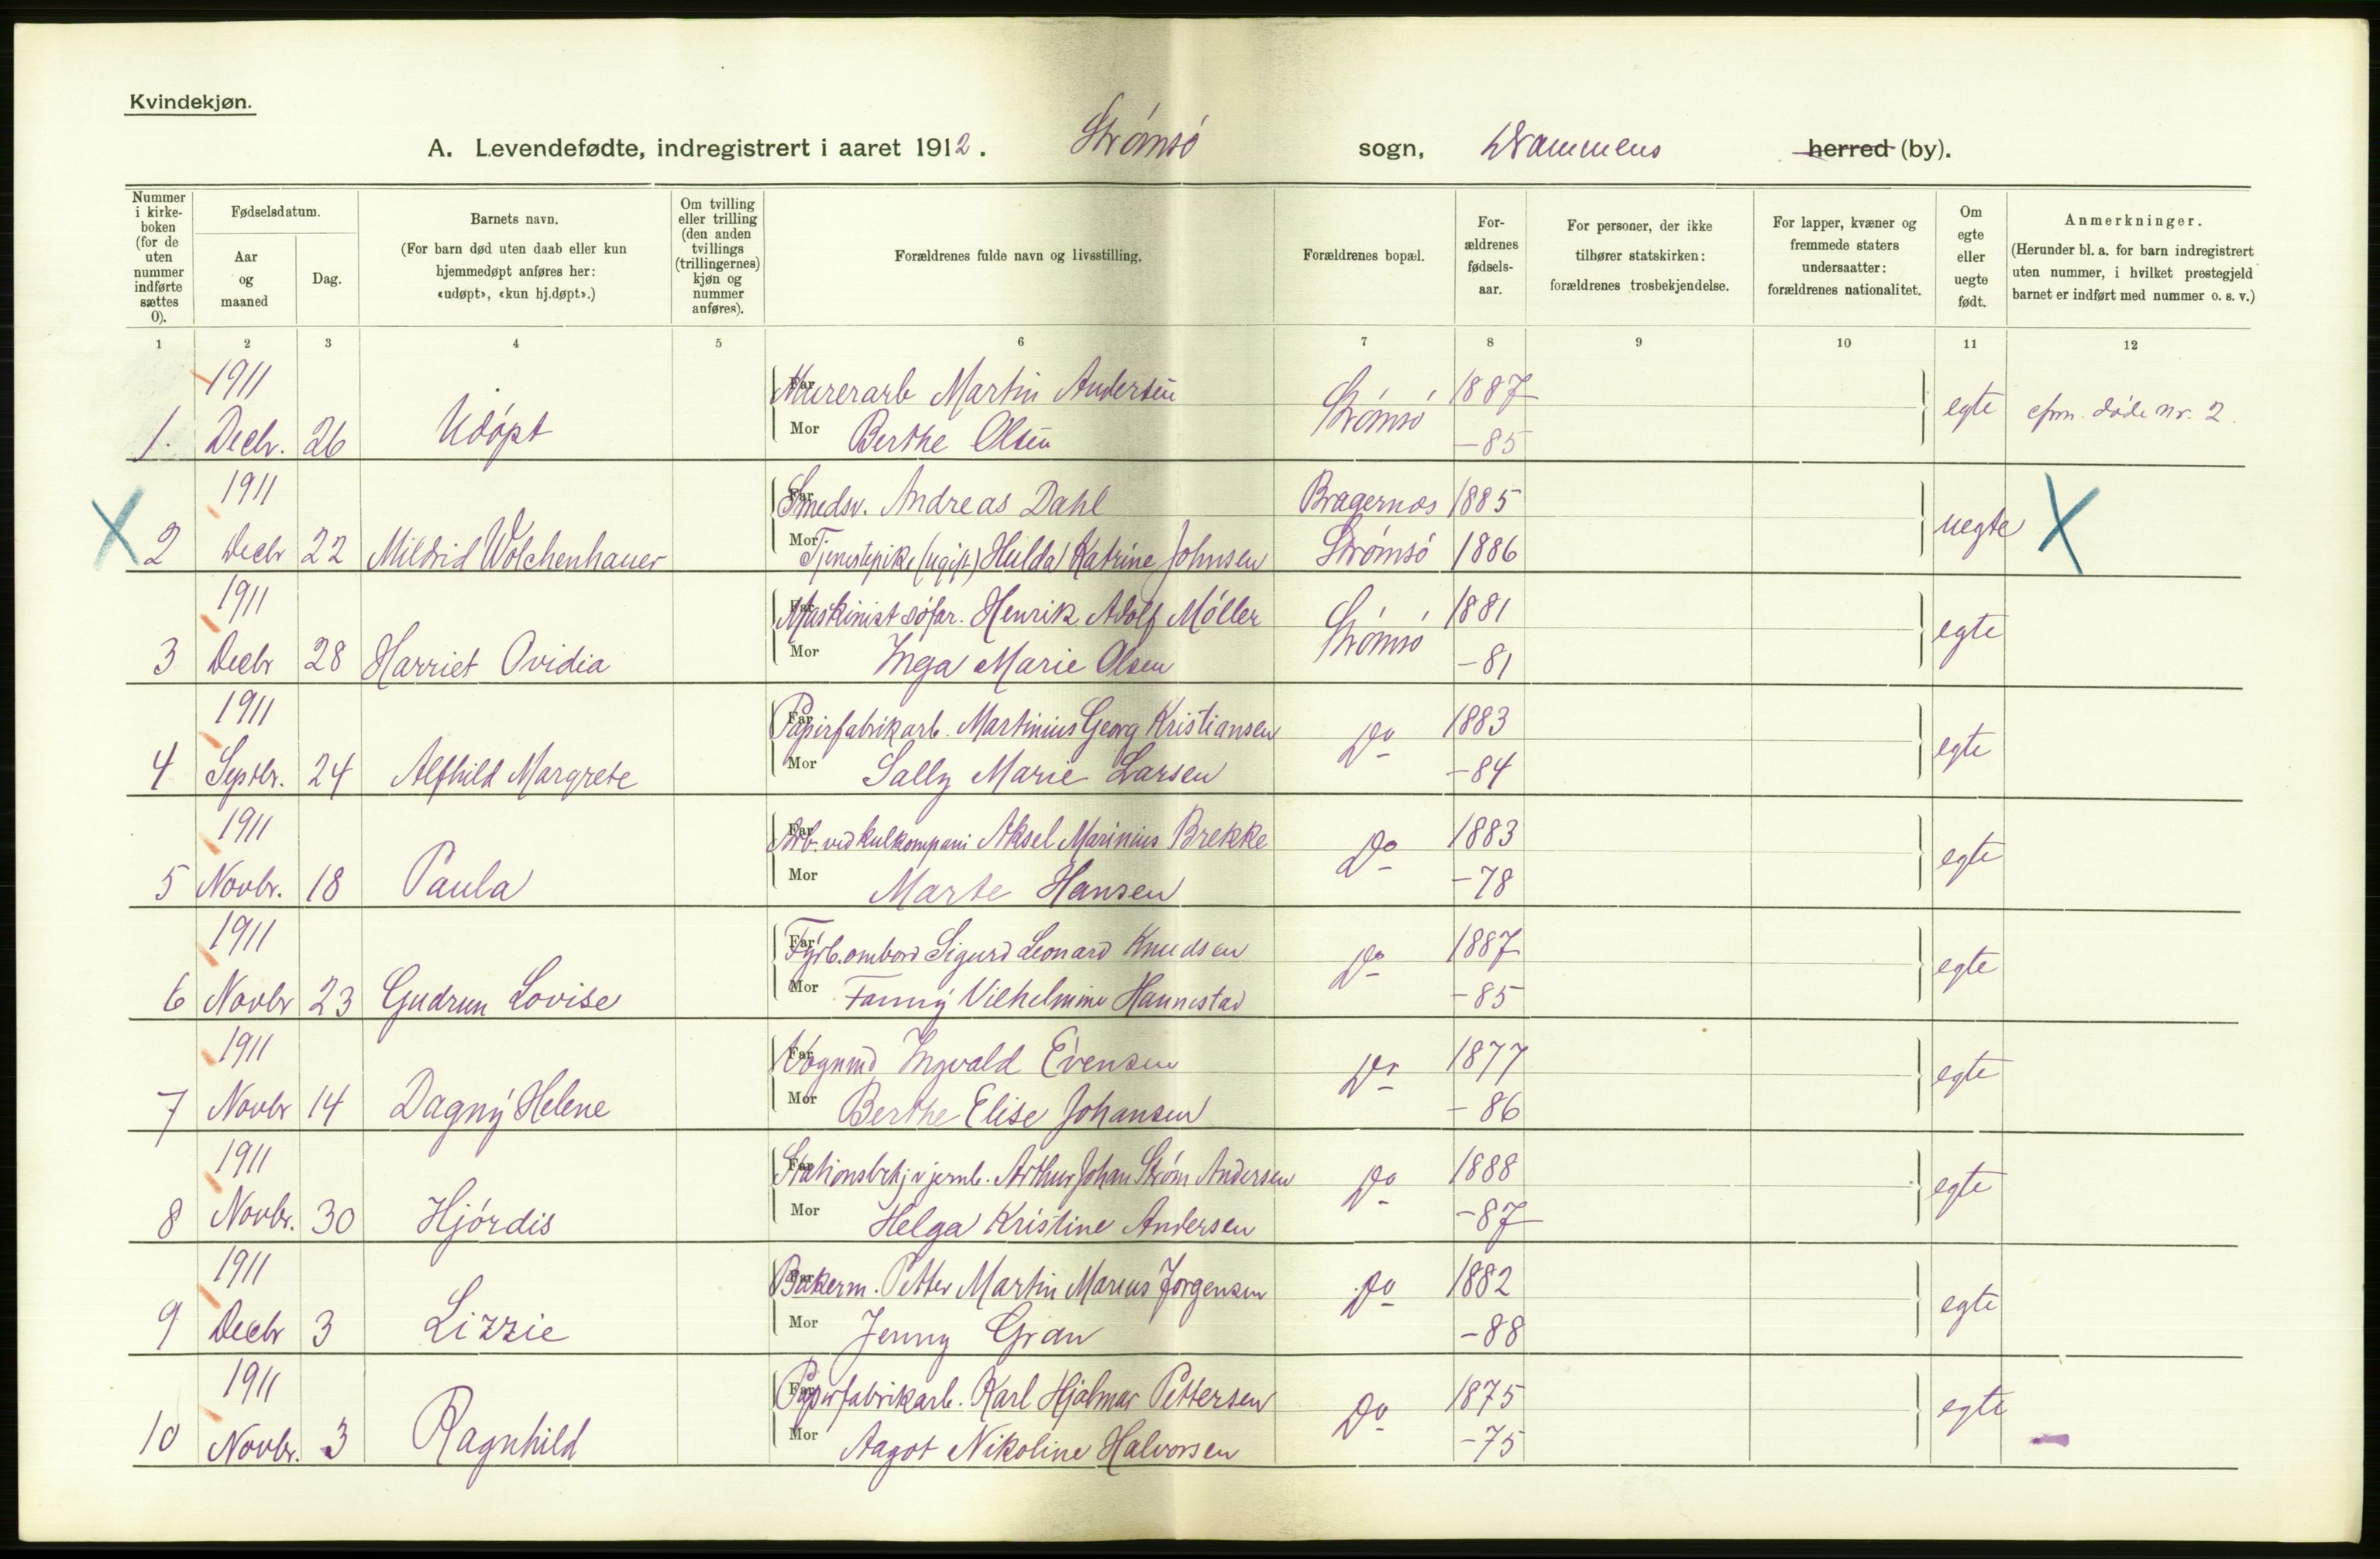 Kvindekjøn.
A. Levendefødte, indregistrert i aaret 1912. Strømsø sogn, Drammens herred (by).
Nummer i kirke-boken (for de uten nummer indførte sættes 0).
Fødselsdatum.
Aar og maaned
Dag.
Barnets navn.
(For barn død uten daab eller kun hjemmedøpt anføres her: «udøpt», «kun hj.døpt».)
Om tvilling eller trilling (den anden tvillings (trillingernes) kjøn og nummer anføres).
Forældrenes fulde navn og livsstilling.
Forældrenes bopæl.
For-ældrenes fødsels-aar.
For personer, der ikke tilhører statskirken: forældrenes trosbekjendelse.
For lapper, kvæner og fremmede staters undersaatter: forældrenes nationalitet.
Om egte eller uegte født.
Anmerkninger.
(Herunder bl. a. for barn indregistrert uten nummer, i hvilket prestegjeld barnet er indført med nummer o. s. v.)
1 2 3 4 5 6 7 8 9 10 11 12
1911 Far Murerarb Martin Andersen 1887
1. Decbr. 26 Udøpt Mor Berthe Olsen Strømsø -85 egte cfrn. døde nr. 2.
1911 Far Smedsv. Andreas Dahl Bragernæs 1885
X 2 Decbr 22 Mildrid Wolchenhauer Mor Tjenestepike (ugift) Hulda Katrine Johnsen Strømsø 1886 uegte X
1911 Far Maskinist søfar. Henrik Adolf Møller 1881
3 Decbr 28 Harriet Ovidia Mor Inga Marie Olsen Strømsø -81 egte
1911 Far Papirfabrikarb. Martinius Georg Kristiansen 1883
4 Septbr. 24 Alfhild Margrete Mor Sally Marie Larsen Do -84 egte
1911 Far Arb. ved kulkompani Aksel Marinius Brekke 1883
5 Novbr. 18 Paula Mor Marte Hansen Do -78 egte
1911 Far Fyrb. ombord Sigurd Leonard Knudsen 1887
6 Novbr 23 Gudrun Lovise Mor Fanny Vilhelmine Hannestad Do -85 egte
1911 Far Vognmd Ingvald Evensen 1877
7 Novbr 14 Dagny Helene Mor Berthe Elise Johansen Do -86 egte
1911 Far Stationsbetj v jernb. Arthur Johan Strøm Andersen 1888
8 Novbr. 30 Hjørdis Mor Helga Kristine Andersen Do -87 egte
1911 Far Bakerm. Petter Martin Marius Jørgensen 1882
9 Decbr 3 Lizzie Mor Jenny Gran Do -88 egte
1911 Far Papirfabrikarb. Karl Hjalmar Pettersen 1875
10 Novbr. 3 Ragnhild Mor Aagot Nikoline Halvorsen Do -75 egte